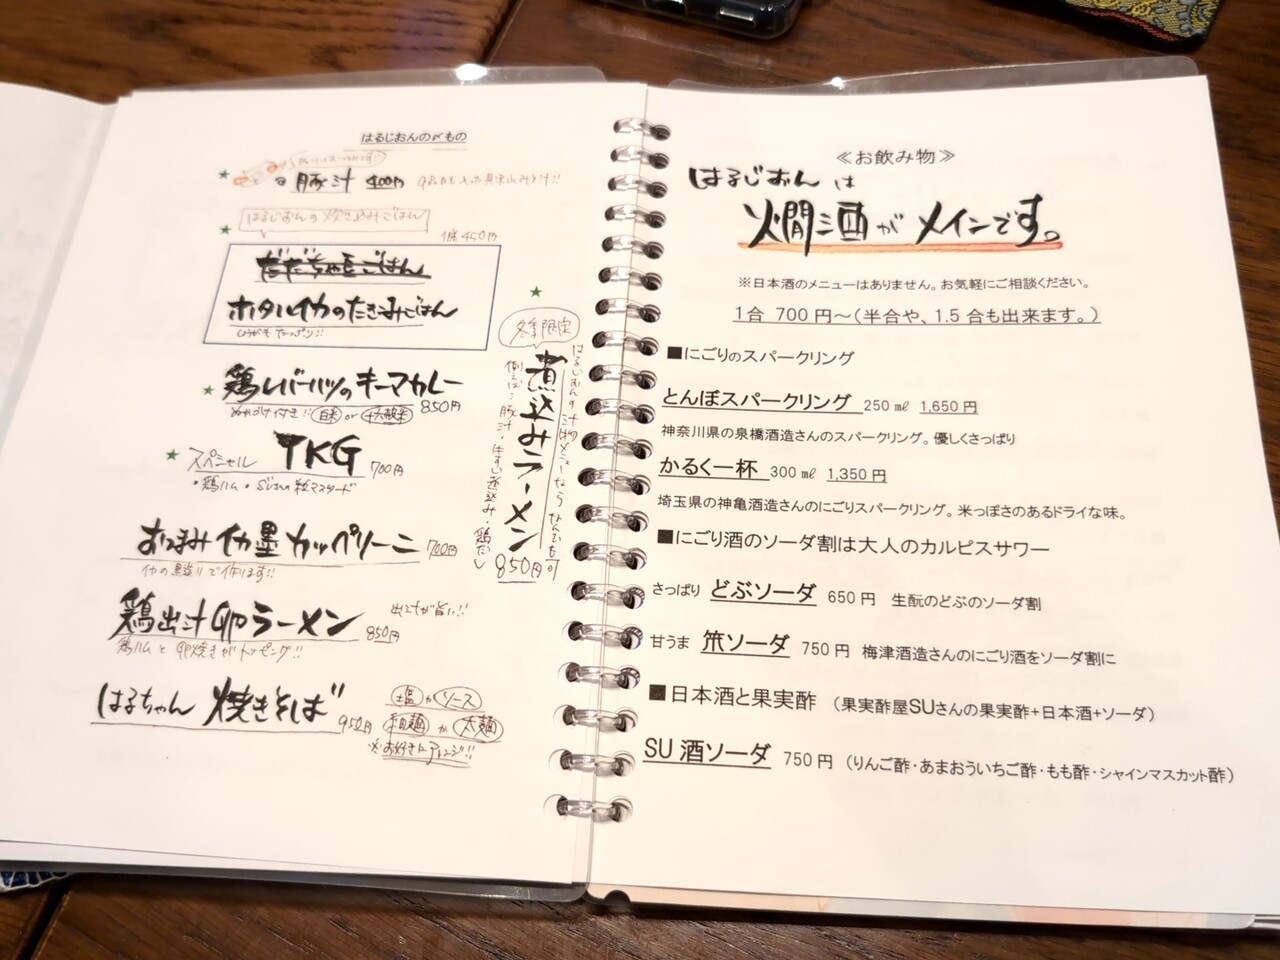 はるじおんの〆もの
豚汁 400円
はるじおんの炊き込みごはん
1膳 450円
だだちゃ豆ごはん
ホタルイカのたきこみごはん
しょうがもたーっぷり!!
鶏レバーハツのキーマカレー
850円
白米 or 十六穀米
スペシャル TKG 700円
・鶏ハム・SUさんの粒マスタード
おつまみイカ墨カッペリーニ 700円
イカの墨造りで作ります!!
鶏出汁卵ラーメン 850円
出汁が旨い!!
鶏ハムと卵焼きがトッピング!!
はるちゃん焼きそば 950円
塩 か ソース
細麺 か 太麺
※お好きにアレンジ!!
冬季限定
はるじおんの汁物メニューならなんでも可
煮込みラーメン
850円
例えば:豚汁・牛すじ煮込み・鶏だし
≪お飲み物≫
はるじおんは
燗酒がメインです。
※日本酒のメニューはありません。お気軽にご相談ください。
1合 700円~(半合や、1.5合も出来ます。)
■にごりのスパークリング
とんぼスパークリング 250㎖ 1,650円
神奈川県の泉橋酒造さんのスパークリング。優しくさっぱり
かるく一杯 300㎖ 1,350円
埼玉県の神亀酒造さんのにごりスパークリング。米っぽさのあるドライな味。
■にごり酒のソーダ割は大人のカルピスサワー
さっぱり どぶソーダ 650円 生酛のどぶのソーダ割
甘うま 笊ソーダ 750円 梅津酒造さんのにごり酒をソーダ割に
■日本酒と果実酢 (果実酢屋SUさんの果実酢+日本酒+ソーダ)
SU酒ソーダ 750円 (りんご酢・あまおういちご酢・もも酢・シャインマスカット酢)